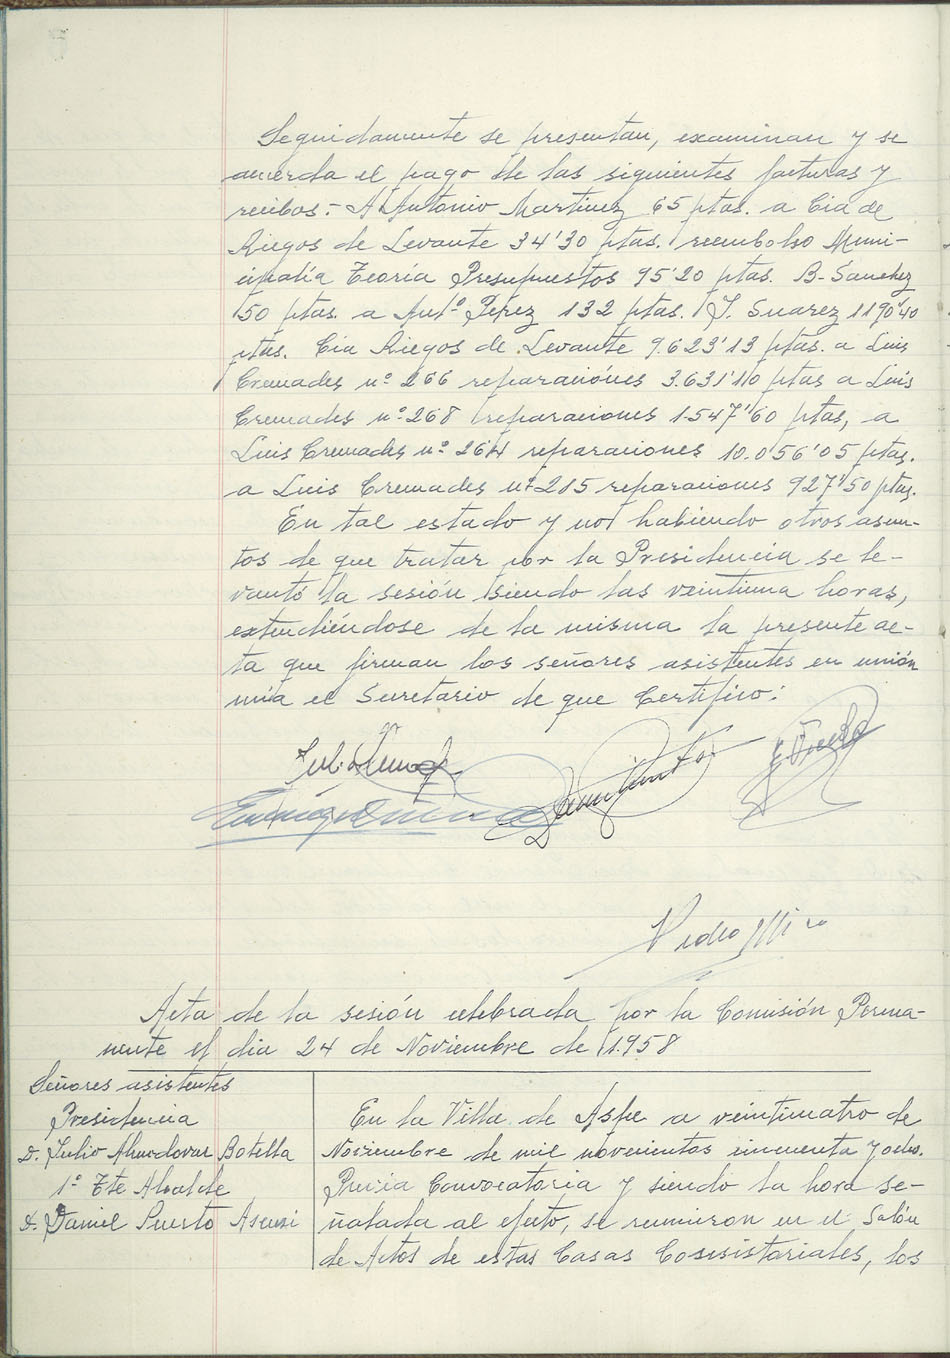 Seguidamente se presentan, examinan y se
acuerda el pago de las siguientes facturas y
recibos:- A Antonio Martinez 65 ptas. a Cia de
Riegos de Levante 34'30 ptas. reembolso Muni-
cipalia Teoría Presupuestos 95'20 ptas. B. Sanchez
50 ptas. a Antº Perez 132 ptas. J. Suarez 1190'40
ptas. Cia Riegos de Levante 9.623'13 ptas. a Luis
Cremades nº 266 reparaciónes 3.631'10 ptas a Luis
Cremades nº 268 reparaciones 1547'60 ptas, a
Luis Cremades nº 264 reparaciones 10.056'05 ptas.
a Luis Cremades nº 215 reparaciones 927'50 ptas.
En tal estado y no habiendo otros asun-
tos de que tratar por la Presidencia se le-
vantó la sesión siendo las veintiuna horas,
extendiéndose de la misma la presente ac-
ta que firman los señores asistentes en unión
mia el Secretario de que Certifico:
Pedro Miro
Acta de la sesión celebrada por la Comisión Perma-
nente el dia 24 de Noviembre de 1.958
Señores asistentes
Presidencia
D. Julio Almodovar Botella
1º Tte Alcalde
D. Daniel Puerto Asensi
En la Villa de Aspe a veinticuatro de
Noviembre de mil novecientos cincuenta y ocho.
Previa Convocatoria y siendo la hora se-
ñalada al efecto, se reunieron en el Salón
de Actos de estas Casas Cosisistariales, los